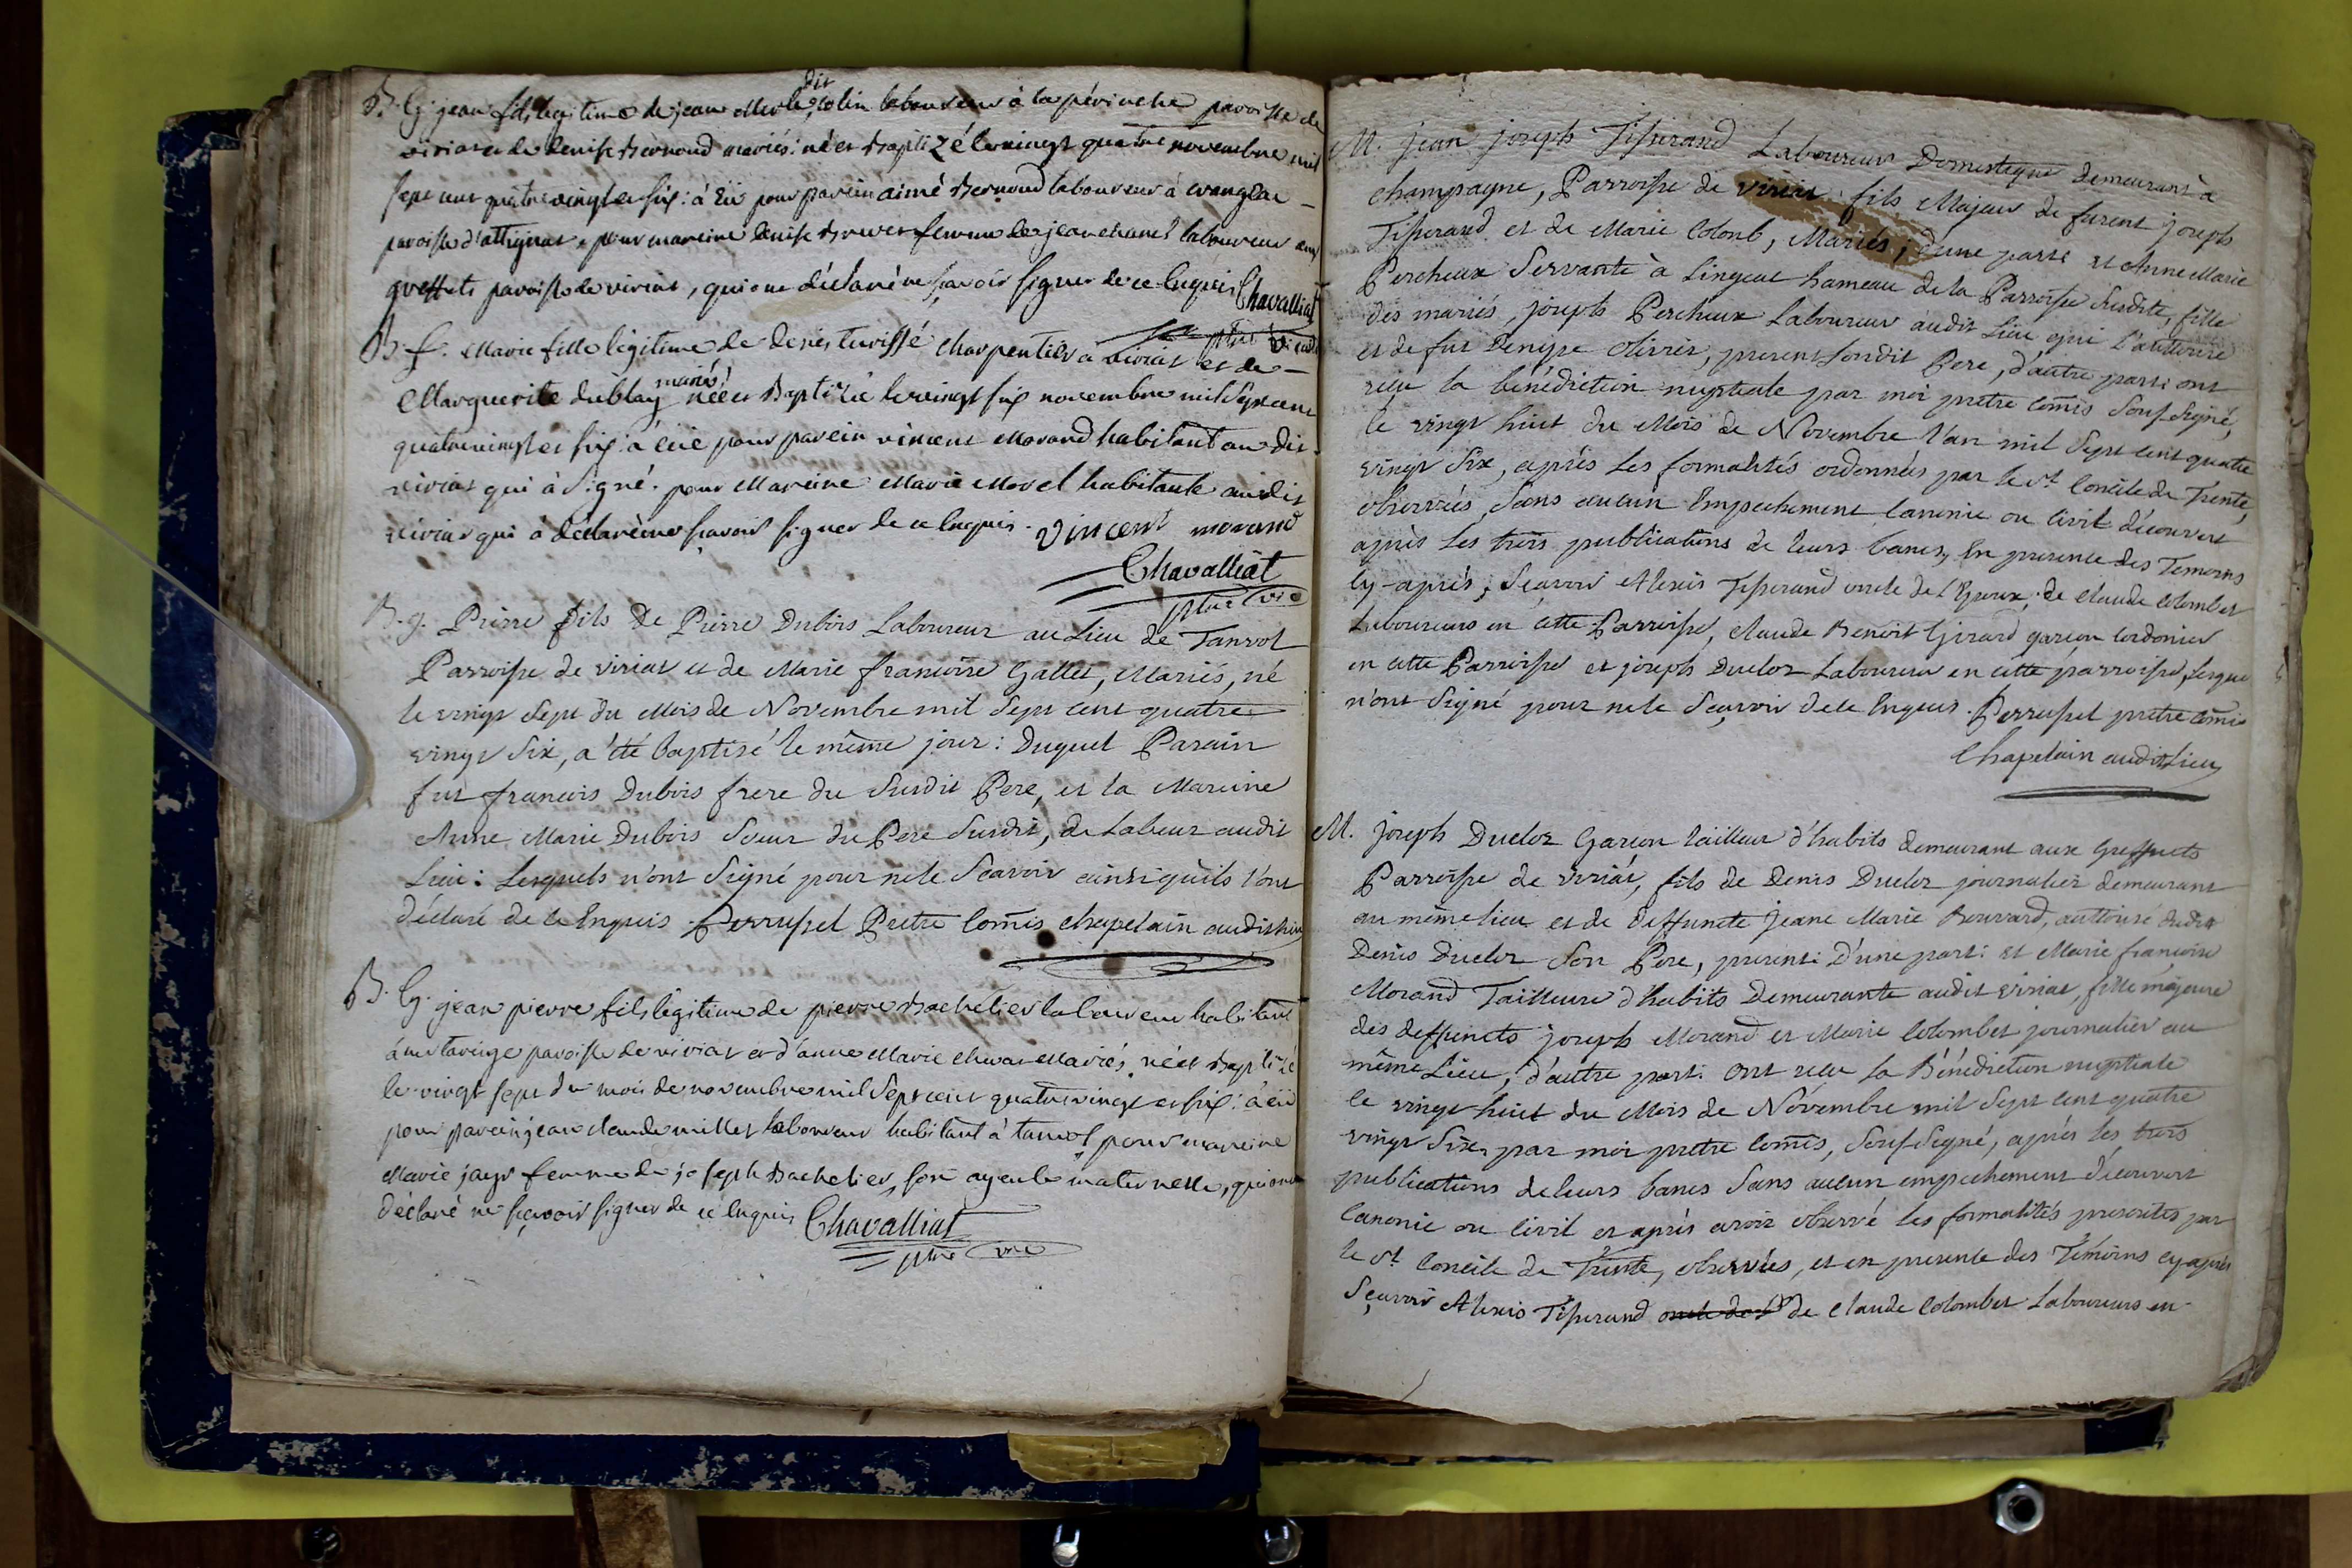 B. G. jean fils legitime de jean Merle dit Colin laboureur à la périnche paroisse de
viriat et de denise Bernoud mariés: né et Baptizé le vingt quatre novembre mil
sept cent quatre vingt et six: à êû pour parein aimé Bernoud laboureur à
paroisse d'attignat, pour mareine denise femme de jean laboureur aux
greffets paroisse de viriat, qui ont déclaré ne sçavoir signer de ce Enquis Chavalliat
ptre vicaire
B. f. Marie fille légitime de denis Charpentier à viriat et de
Marguerite dublay mariés! née et Baptizée le vingt six novembre mil Sept cent
quatre vingt et six: à êû pour parein vincent Morand habitant au dit
viriat qui à signé. pour Mareine Marie Morel habitante au dit
viriat qui à déclaré ne sçavoir signer de ce Enquis. vincent morand
Chavalliat
ptre vic
B. g. Pierre fils de Pierre Dubois Laboureur au Lieu de Tanvol
Parroisse de viriat et de Marie françoise Gallet, Mariés, né
le vingt Sept du Mois de Novembre mil Sept cent quatre
vingt Six, a été baptisé le même jour: Duquel Parain
fut françois Dubois frere du Susdit Pere, et la Mareine
Anne Marie Dubois Soeur du Pere Susdit, de Labeur audit
Lieu: Lesquels n'ont Signé pour ne le Scavoir ainsi qu'ils l'ont
déclaré de ce Enquis Perrussel Pretre Comis chapelain audit Lieu
B. G. jean pierre fils légitime de pierre Bachelier laboureur habitant
à paroisse de viriat et d'anne Marie Mariés, né et Baptizé
le vingt sept du mois de novembre mil Sept cent quatre vingt et six: à êû
pour parein jean claude millet laboureur habitant à tanvol pour mareine
Marie jayr femme de joseph Bachelier, son ayeule maternelle, qui ont
déclaré ne sçavoir signer de ce Enquis Chavalliat
ptre vic
M. Jean joseph Tisserand Laboureur Domestique demeurant à
Champagne, Parroisse de viriat fils Majeur de furent joseph
Tisserand et de Marie Colomb, Mariés; d'une part: et Anne Marie
Percheux Servante à Lingeat hameau de la Parroisse Susdite, fille
des mariés, joseph Percheux Laboureur audit Lieu qui l'authorise
et de fut Denyse Olivier, present Sondit Pere, d'autre part: ont
reçu la bénédiction nuptiale par moi pretre Comis Soussigné,
le vingt huit du Mois de Novembre l'an mil Sept cent quatre
vingt Six, après les formalités ordonnées par le St Concile de Trente,
observées, Sans aucun Empechement Canonic ou Civil découvert
après les trois publications de leurs bancs, En presence des Temoins
Cy-après; Scavoir Alexis Tisserand oncle de l'Epoux; de claude Colombet
Laboureurs en cette Parroisse, claude Benoit Girard garçon Cordonier
en cette Parroisse et joseph Ducloz Laboureur en cette parroisse, Lesquels
n'ont Signé pour ne le Sçavoir de ce Enquis. Perrussel pretre comis
Chapelain audit Lieu
M. joseph Ducloz Garcon tailleur d'habits demeurant aux Greffets
Parroisse de viriat, fils de Denis Ducloz journalier demeurant
au même lieu et de deffuncte Jeane Marie Bouvard, authorisé dudit
Denis Ducloz Son Pere, present: D'une part: et Marie françoise
Morand Tailleuse d'habits Demeurante audit viriat, fille majeure
des deffuncts joseph Morand et Marie Colombet journalier au
même Lieu, d'autre part: ont reçu la Bénédiction nuptiale
le vingt huit du Mois de Novembre mil Sept cent quatre
vingt Six, par moi pretre Comis, Soussigné, après les trois
publications de leurs bancs Sans aucun empechement découvert
Canonic ou Civil et après avoir observé les formalités prescrites par
le St Concile de Trente, observées, et en presence des Témoins cy après
Sçavoir Alexis Tisserand oncle de l' de claude Colombet Laboureurs en